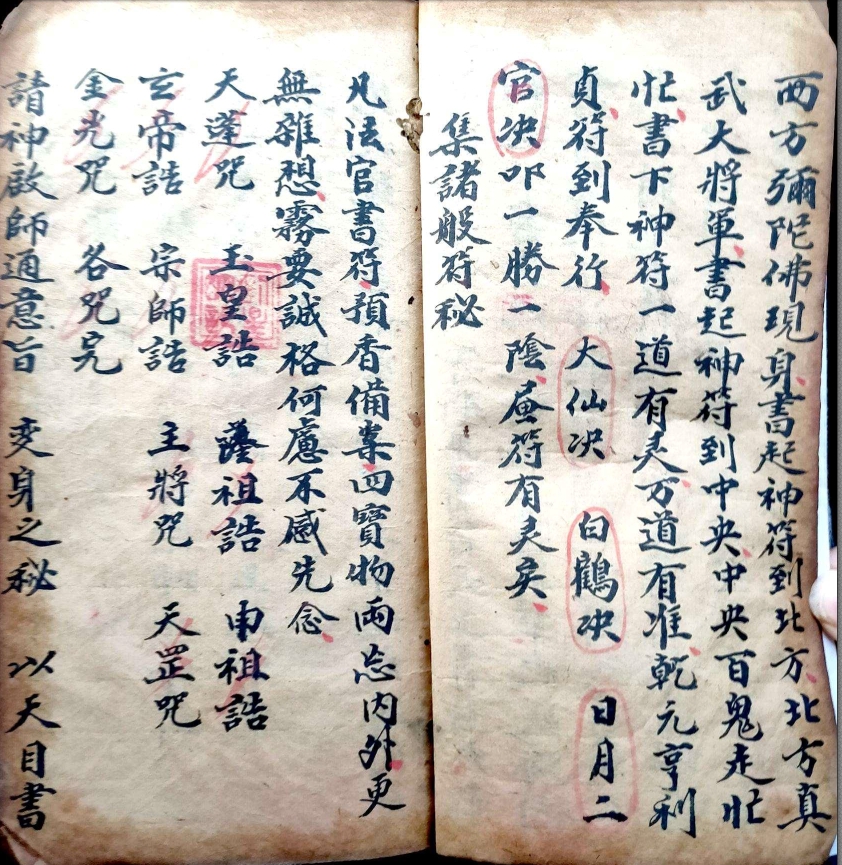 西方彌陀佛現身書起神符到北方北方真
武大將軍書起神符到中央中央百鬼走忙
忙書下神符一道有灵万道有准乾元亨利
貞符到奉行 大仙决 白鶴决 日月二
官决 叩一勝一陰 符有灵矣
集諸般符秘
凡法官書符預香備案四寶物兩忘内外更
無雜想霧要誠格何慮不感先念
天蓬咒 玉皇誥 薩祖誥 申祖誥
玄帝誥 宗師誥 主將咒 天罡咒
金光咒 各咒完
請神啟師通意旨 变身之秘 以天目書